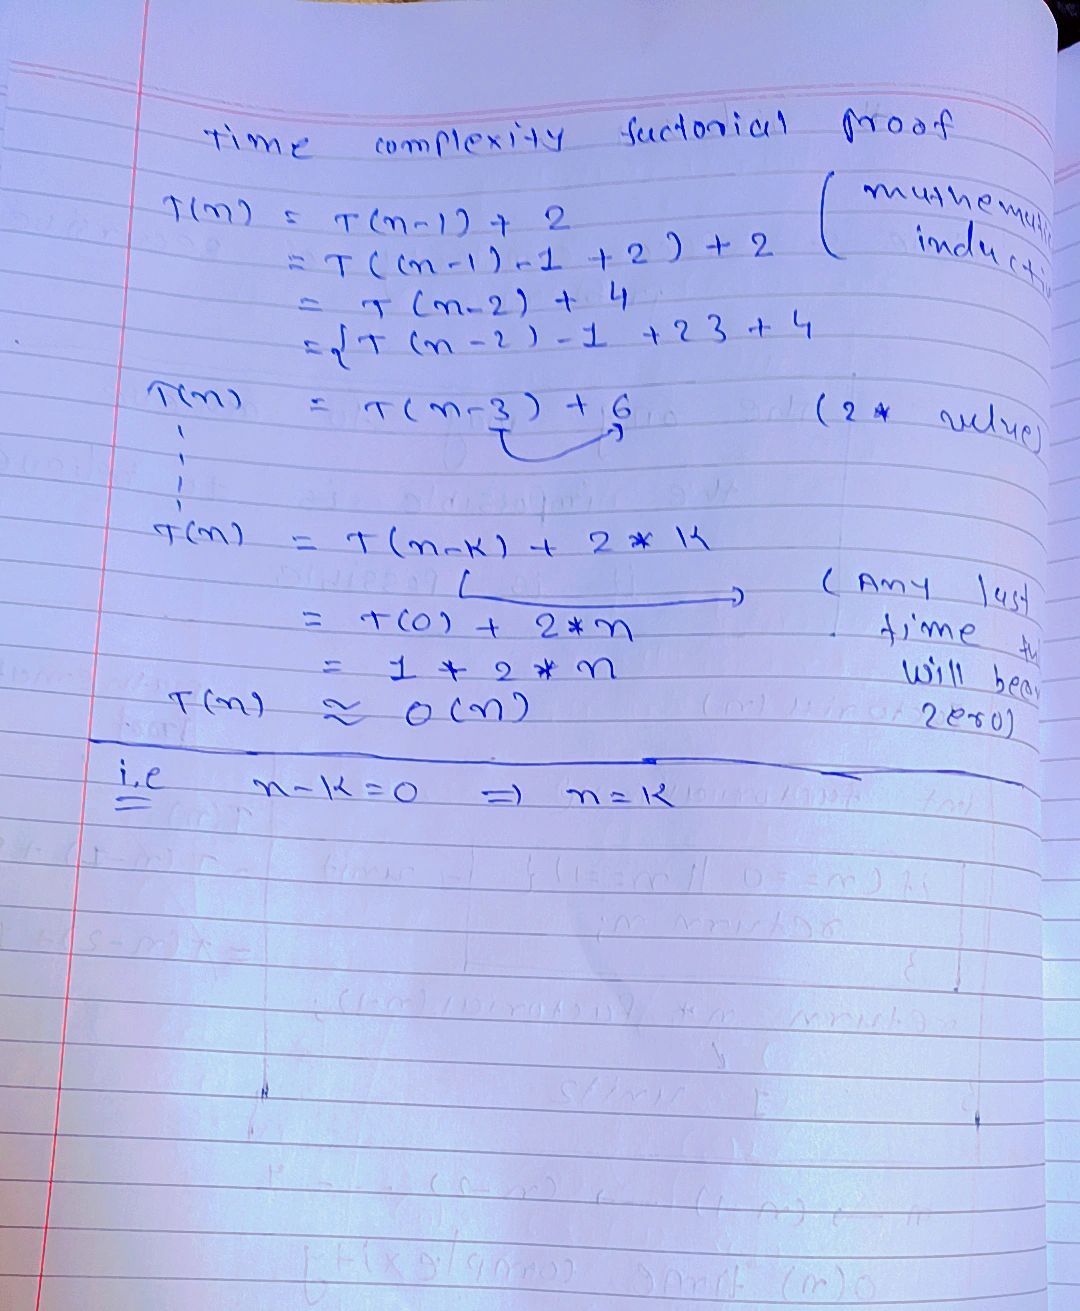 Time complexity factorial proof
T(n) = T(n-1) + 2 (mathemati
= T((n-1)-1 + 2) + 2 inducti
= T(n-2) + 4
= {T(n-2)-1 + 2} + 4
T(n) = T(n-3) + 6 (2 * value)
T(n) = T(n-k) + 2 * k
(Any last
= T(0) + 2*n time
= 1 + 2 * n will
T(n) ≈ O(n) zero)
i.e n-k=0 => n=k